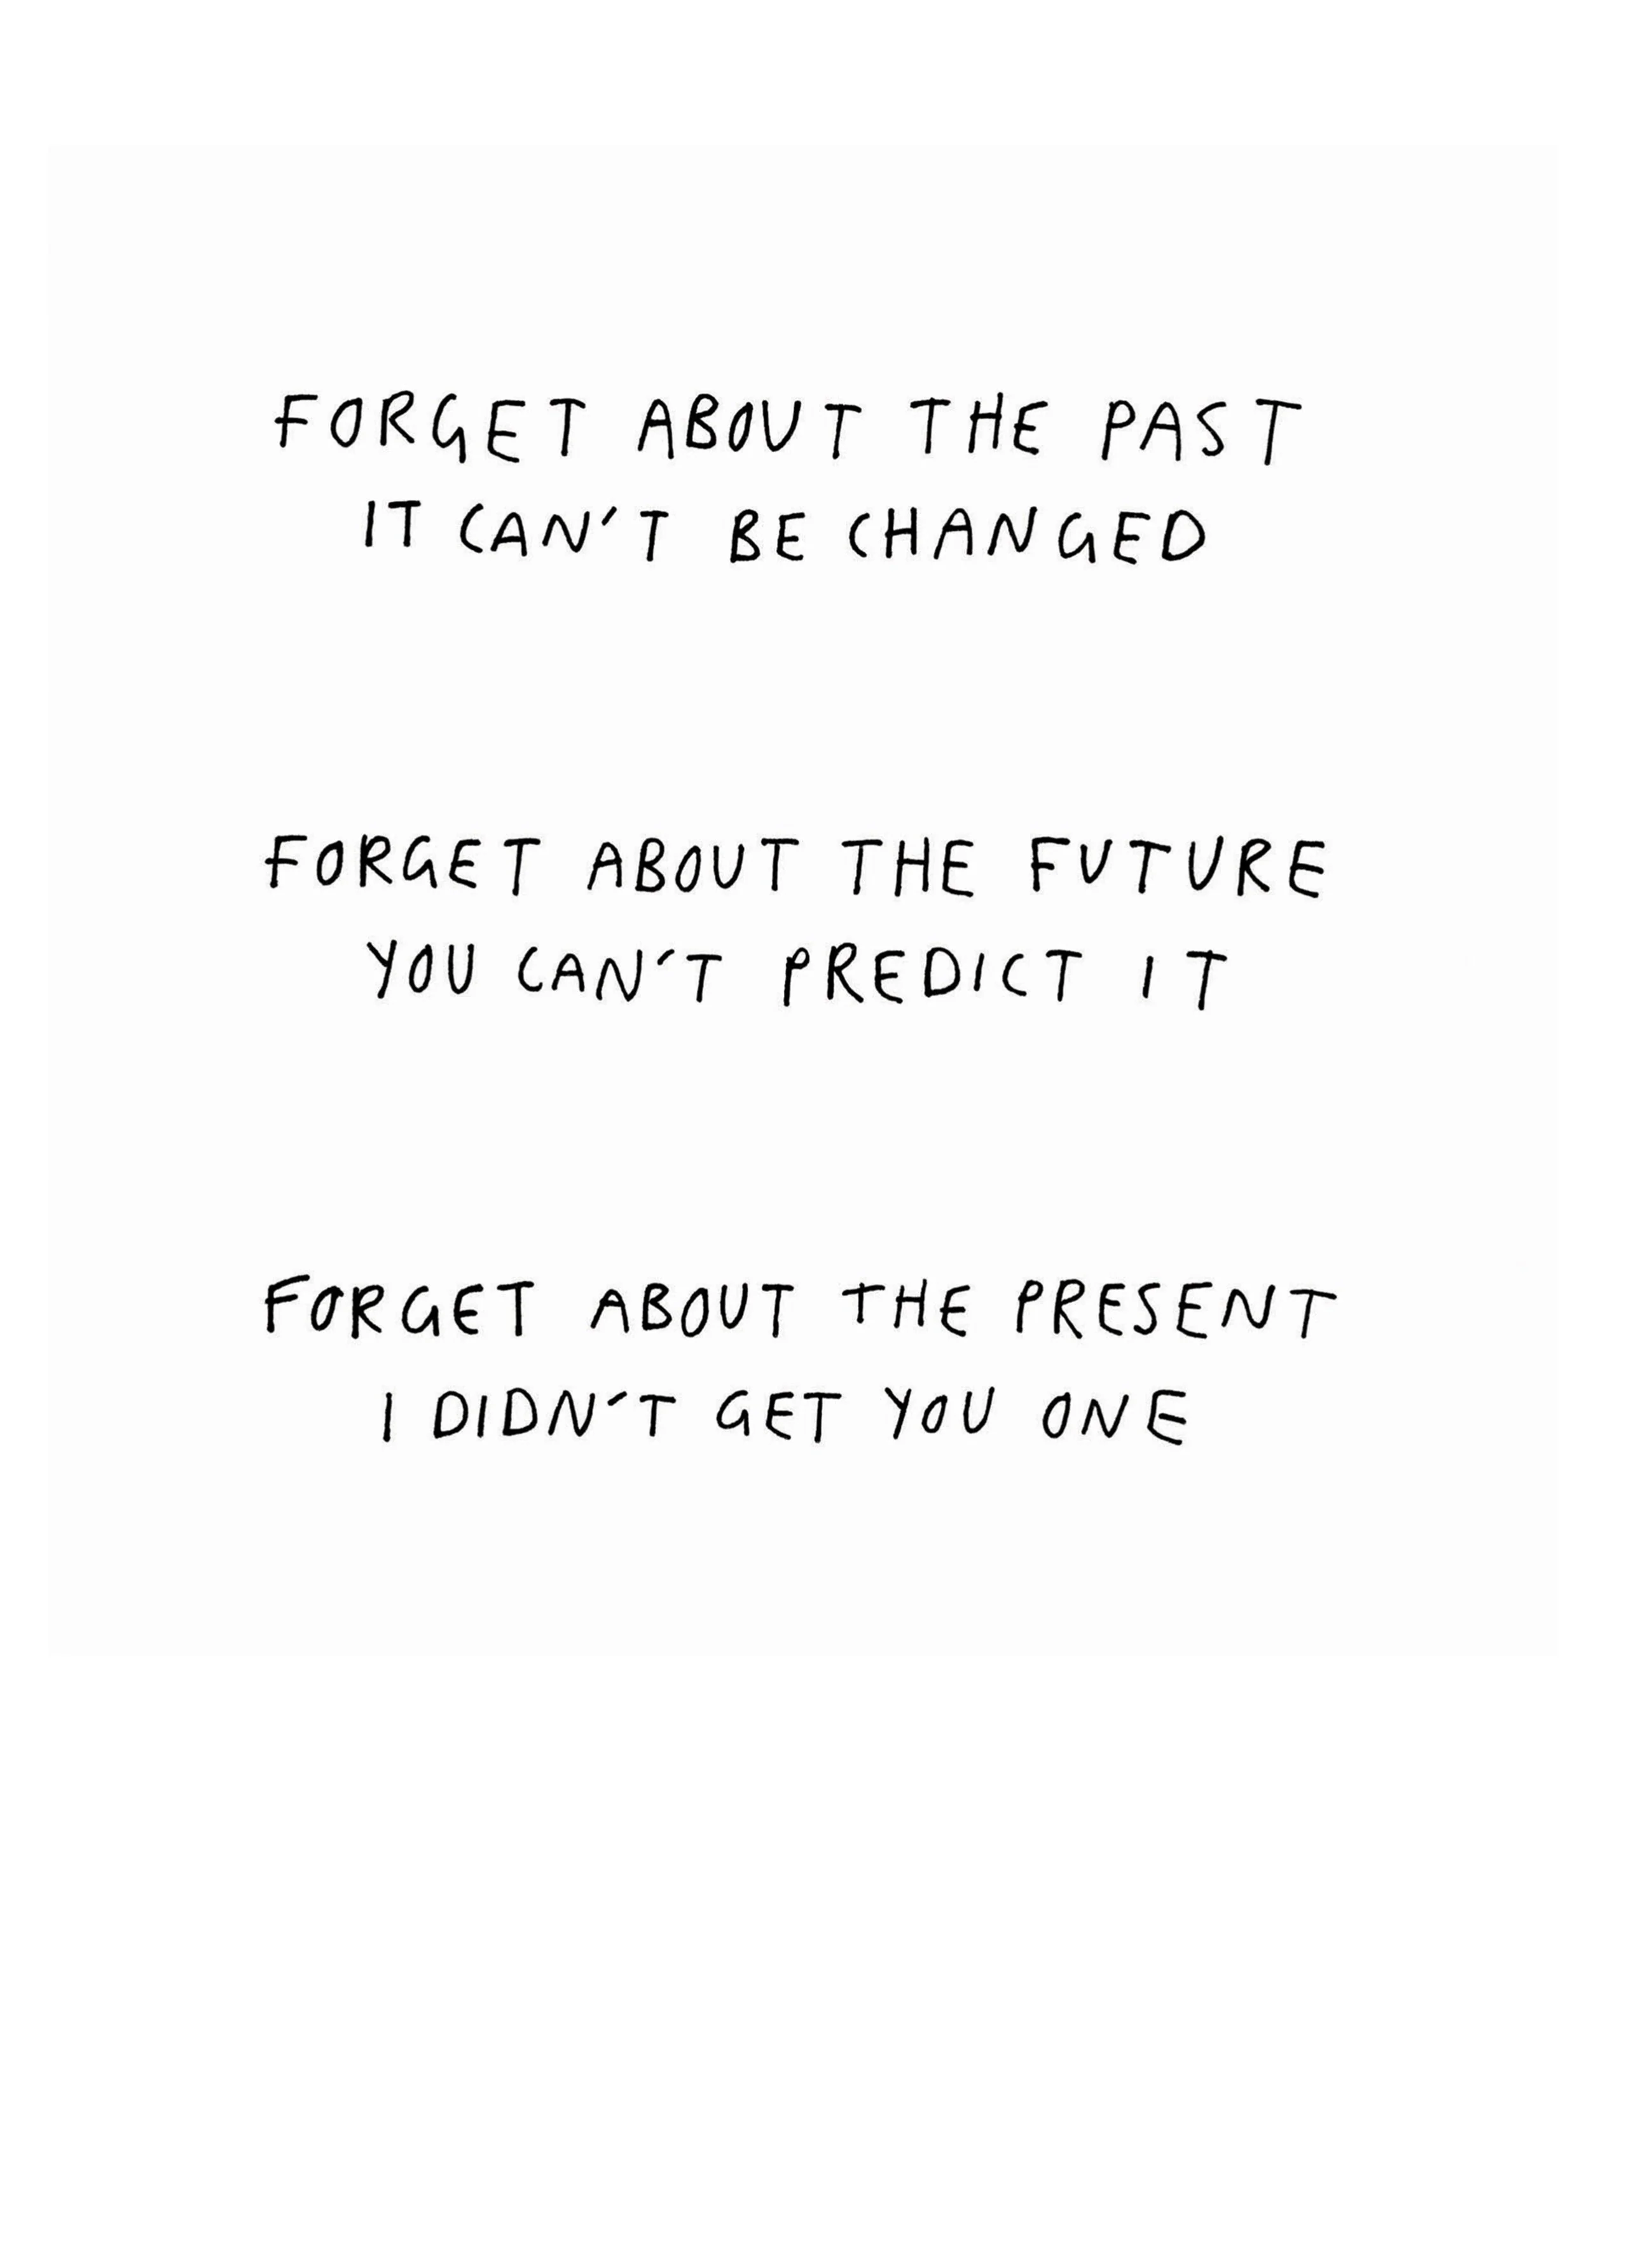 FORGET ABOUT THE PAST
IT CAN'T BE CHANGED
FORGET ABOUT THE FUTURE
YOU CAN'T PREDICT IT
FORGET ABOUT THE PRESENT
I DIDN'T GET YOU ONE